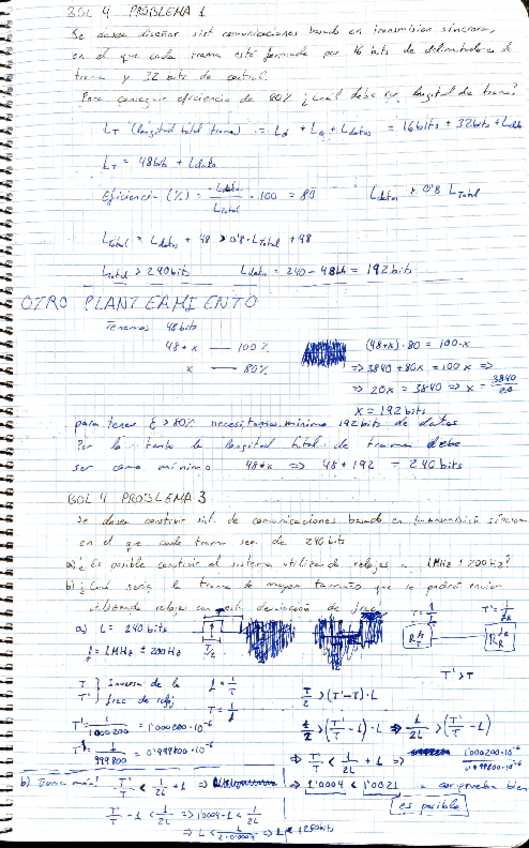 BOL 4 PROBLEMA 1
Se desea diseñar sist comunicaciones basado en transmisión síncrona,
en el que cada trama esté formada por 16 bits de delimitadores de
trama y 32 bits de control.
Para conseguir eficiencia de 80% ¿Cuál debe ser longitud de trama?
L_T (longitud total trama) = L_d + L_c + L_datos = 16 bits + 32 bits + L_datos
L_T = 48 bits + L_datos
Eficiencia (%) = L_datos / L_total · 100 = 80 L_datos > 0'8 L_Total
L_total = L_datos + 48 > 0'8 · L_Total + 48
L_total > 240 bits L_datos = 240 - 48 bits = 192 bits
OTRO PLANTEAMIENTO
Tenemos 48 bits
48 + x — 100% (48+x) · 80 = 100 · x
x — 80% => 3840 + 80x = 100x =>
=> 20x = 3840 => x = 3840/20
x = 192 bits
para tener ξ > 80% necesitamos mínimo 192 bits de datos
Por lo tanto la longitud total de trama debe
ser como mínimo 48+x => 48 + 192 = 240 bits
BOL 4 PROBLEMA 3
Se desea construir sist. de comunicaciones basado en transmisión síncrona
en el que cada trama sea de 240 bits
a) ¿Es posible construir el sistema utilizando relojes 1MHz ± 200Hz?
b) ¿Cuál sería la trama de mayor tamaño que se podrá enviar
utilizando relojes con esta desviación de frec?
a) L = 240 bits T/2 T = 1/f T' = 1/f_R
f = 1MHz ± 200Hz
T' > T
T T' } Inversa de la frec de reloj f = 1/T T = 1/f
T/2 > (T'-T) · L
T' = 1/1000200 = 1'000200 · 10^-6
1/2 > (T'/T - 1) · L => 1/2L > (T'/T - 1)
T = 1/999800 = 0'999800 · 10^-6
=> T'/T < 1/2L + 1 => 1'000200·10^-6 / 0'999800·10^-6
=> 1'0004 < 1'0021 comprueba bien
es posible
b) T'/T < 1/2L + 1 =>
T'/T - 1 < 1/2L => 1'0004 - 1 < 1/2L
=> L < 1/2·0'0004 => L < 1250 bits